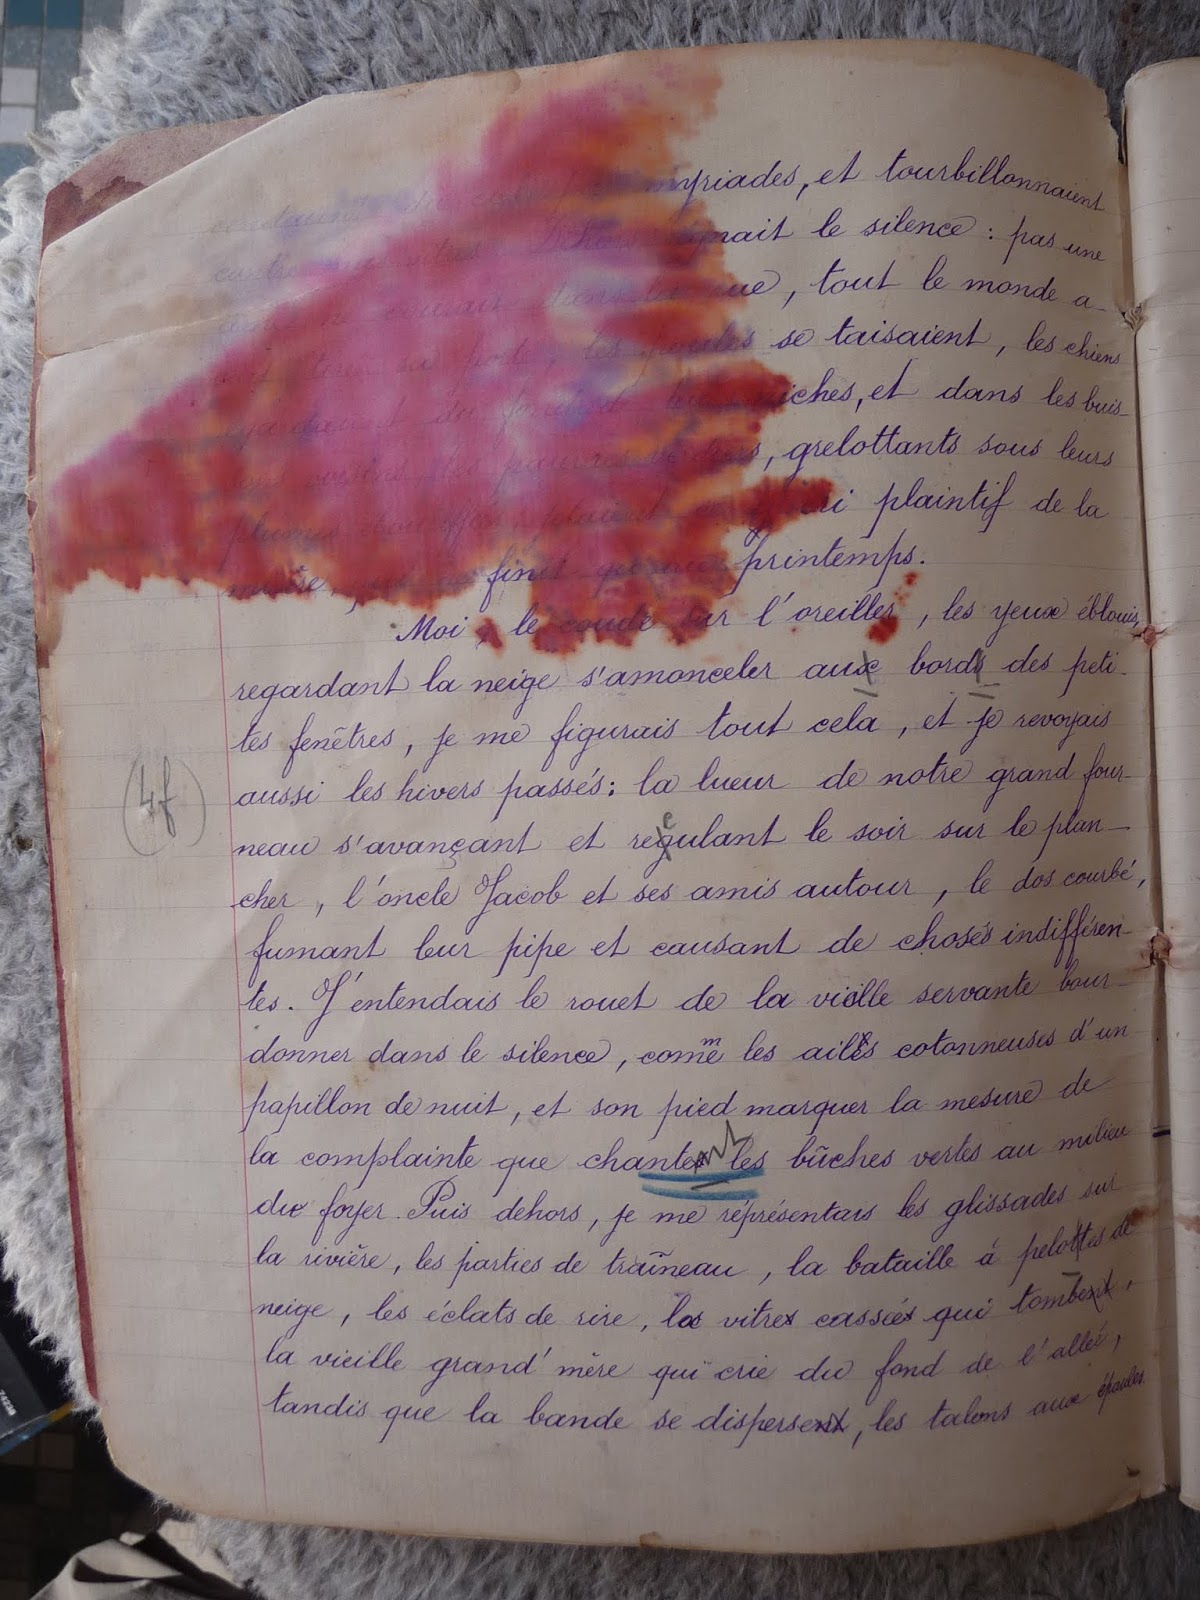 myriades, et tourbillonnaient
vitres. Dehors régnait le silence : pas une
rue, tout le monde a-
se taisaient, les chiens
niches, et dans les buis-
grelottants sous leurs
cri plaintif de la
finit printemps.
Moi, le coude sur l'oreiller, les yeux éblouis,
regardant la neige s'amonceler aux bords des peti-
tes fenêtres, je me figurais tout cela, et je revoyais
aussi les hivers passés : la lueur de notre grand four-
4f
neau s'avançant et reculant le soir sur le plan-
cher, l'oncle Jacob et ses amis autour, le dos courbé,
fumant leur pipe et causant de choses indifféren-
tes. J'entendais le rouet de la vieille servante bour-
donner dans le silence, comme les ailes cotonneuses d'un
papillon de nuit, et son pied marquer la mesure de
la complainte que chantent les bûches vertes au milieu
du foyer. Puis dehors, je me réprésentais les glissades sur
la rivière, les parties de traîneau, la bataille à pelotes de
neige, les éclats de rire, la vitre cassée qui tombe,
la vieille grand'mère qui crie du fond de l'allée,
tandis que la bande se disperse, les talons aux épaules